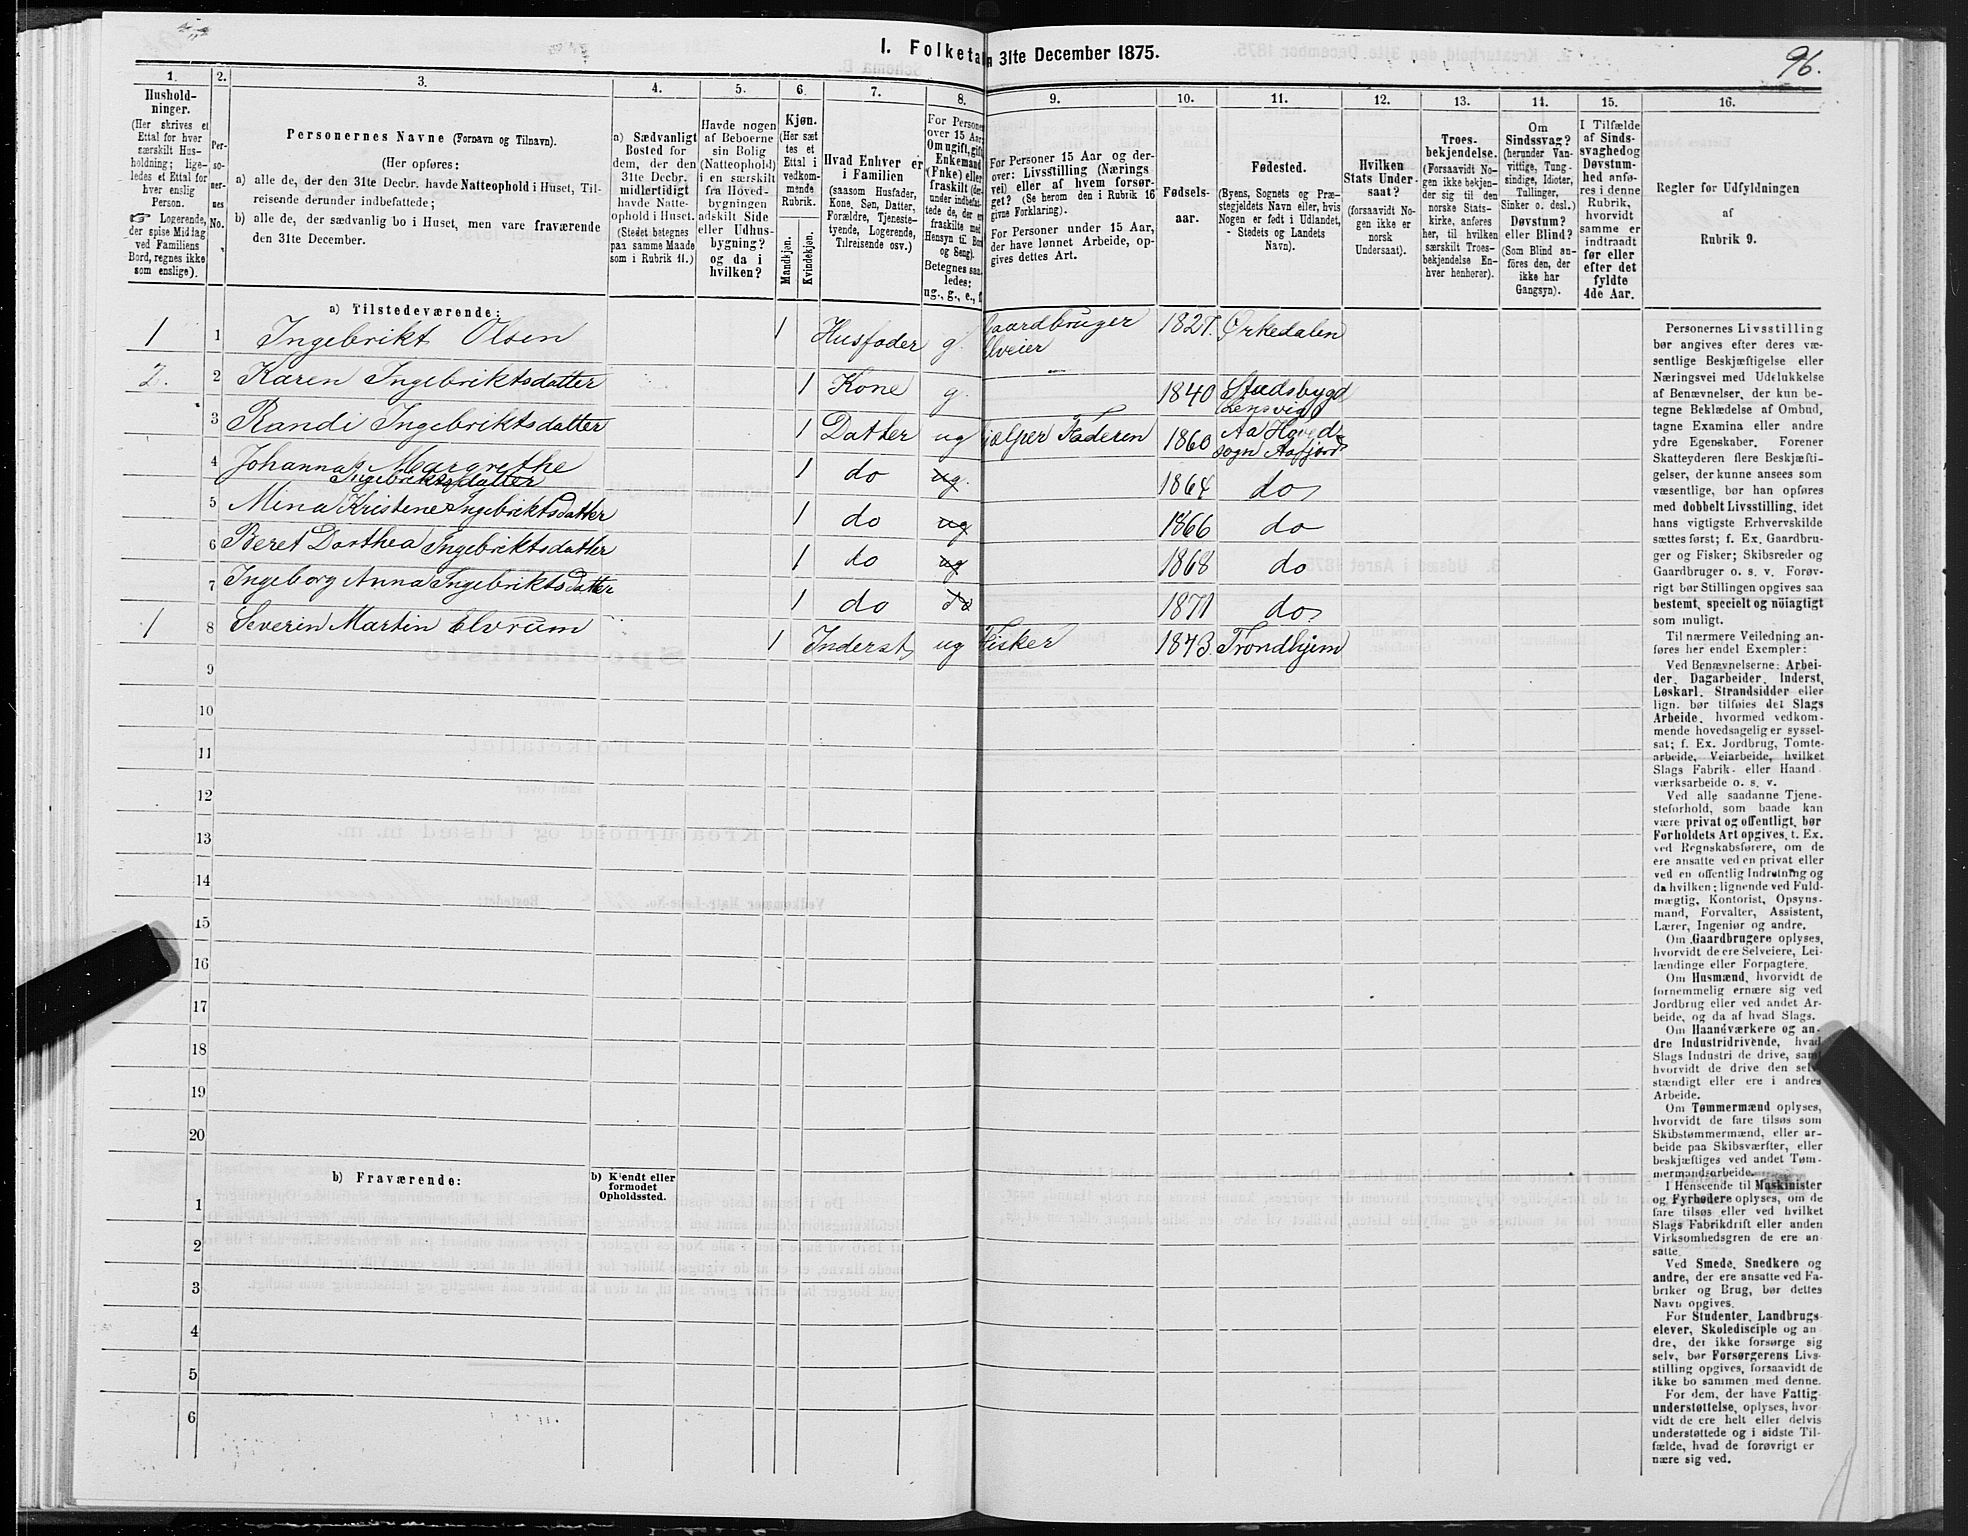 96.
I. Folketal
n 31te December 1875.
1.
2.
3.
4.
5.
6.
7.
8.
9.
10.
11.
12.
13.
14.
15.
16.
Hushold-
ninger.
(Her skrives et
Ettal for hver
særskilt Hus-
holdning; lige-
ledes et Ettal for
hver enslig
Person.
☞ Logerende,
der spise Middag
ved Familiens
Bord, regnes ikke
som enslige).
Per-
so-
ner-
nes
No.
Personernes Navne (Fornavn og Tilnavn).
(Her opføres:
a) alle de, der den 31te Decbr. havde Natteophold i Huset, Til-
reisende derunder indbefattede;
b) alle de, der sædvanlig bo i Huset, men vare fraværende
den 31te December.
a) Sædvanligt
Bosted for
dem, der den
31te Decbr.
midlertidigt
havde Natte-
ophold i Huset.
(Stedet betegnes
paa samme Maade
som i Rubrik 11.)
Havde nogen
af Beboerne
sin Bolig
(Natteophold)
i en særskilt
fra Hoved-
bygningen
adskilt Side
eller Udhus-
bygning?
og da i
hvilken?
Kjøn.
(Her sæt
tes et
Ettal i
vedkom-
mende
Rubrik.
Mandkjøn.
Kvindekjøn.
Hvad Enhver er
i Familien
(saasom Husfader,
Kone, Søn, Datter,
Forældre, Tjeneste-
tyende, Logerende,
Tilreisende osv.)
For Persone
over 15 Aar
Om ugift, gift
Enkemand
(Enke) eller
fraskilt (der-
under indbefat-
tede de, der er
fraskilte med
Hensyn til Bo
og Seng).
Betegnes saa-
ledes:
ug., g., e., f
For Personer 15 Aar og der-
over: Livsstilling (Nærings
vei) eller af hvem forsør-
get? (Se herom den i Rubrik 16
givne Forklaring).
For Personer under 15 Aar,
der have lønnet Arbeide, op-
gives dettes Art.
Fødsels-
aar.
Fødested.
(Byens, Sognets og Præ-
stegjeldets Navn eller, hvis
Nogen er født i Udlandet,
Stedets og Landets
Navn).
Hvilken
Stats Under-
saat?
(forsaavidt No-
gen ikke er
norsk
Undersaat).
Troes-
bekjendelse.
(Forsaavidt No-
gen ikke bekjen-
der sig til den
norske Stats-
kirke, anføres
her, til hvilken
særskilt Troes-
bekjendelse En-
hver henhører).
Om
Sindssvag?
(herunder Van-
vittige, Tung-
sindige, Idioter,
Tullinger,
Sinker o. desl.)
Døvstum?
eller Blind?
(Som Blind an-
føres den, der
ikke har
Gangsyn).
I Tilfælde
af Sinds-
svaghed og
Døvstum-
hed anfø-
res i denne
Rubrik,
hvorvidt
samme er
indtraadt
før eller
efter det
fyldte
4de Aar.
Regler for Udfyldningen
af
Rubrik 9.
a) Tilstedeværende:
1 1 Ingebrikt Olsen 1 Husfader g. Gaardbruger Selveier 1827. Ørkedalen
2. 2 Karen Ingebriktsdatter 1 Kone g. 1840 Stadsbygd Lensvig
3 Randi Ingebriktsdatter 1 Datter ug hjælper Faderen 1860 Aa Hoved-
sogn Aafjord
4 Johanna Margrethe
Ingebriktsdatter 1 do ug. 1864 do
5 Mina Kristene Ingebriktsdatter 1 do ug 1866 do
6 Beret Dorthea Ingebriktsdatter 1 do ug 1868 do
7 Ingeborg Anna Ingebriktsdatter 1 do do 1871 do
1 8 Severin Martin Elvrum 1 Inderst ug Fisker 1843. Trondhjem
9
10
11
12
13
14
15
16
17
18
19
20
b) Fraværende:
b) Kjendt eller
formodet
Opholdssted.
1
2
3
4
5
6
Personernes Livsstilling
bør angives efter deres væ-
sentlige Beskjæftigelse eller
Næringsvei med Udelukkelse
af Benævnelser, der kun be-
tegne Beklædelse af Ombud,
tagne Examina eller andre
ydre Egenskaber. Forener
Skatteyderen flere Beskjæfti-
gelser, der kunne ansees som
væsentlige, bør han opføres
med dobbelt Livsstilling, idet
hans vigtigste Erhvervskilde
sættes først; f. Ex. Gaardbru-
ger og Fisker; Skibsreder og
Gaardbruger o. s. v. Forøv-
rigt bør Stillingen opgives saa
bestemt, specielt og nøiagtigt
som muligt.
Til nærmere Veiledning an-
føres her endel Exempler:
Ved Benævnelserne: Arbei-
der, Dagarbeider, Inderst,
Løskarl, Strandsidder eller
lign. bør tilføies det Slags
Arbeide, hvormed vedkom-
mende hovedsagelig er syssel-
sat; f. Ex. Jordbrug, Tomte-
arbeide, Veiarbeide, hvilket
Slags Fabrik- eller Haand-
værksarbeide o. s. v.
Ved alle saadanne Tjene-
steforhold, som baade kan
være privat og offentligt, bør
Forholdets Art opgives, t. Ex.
ved Regnskabsførere, om de
ere ansatte ved en privat eller
ved en offentlig Indretning og
da hvilken; lignende ved Fuld-
mægtig, Kontorist, Opsyns-
mand, Forvalter, Assistent,
Lærer, Ingeniør og andre.
Om Gaardbrugere oplyses,
hvorvidt de ere Selveiere, Lei-
lændinge eller Forpagtere.
Om Husmænd, hvorvidt de
fornemmelig ernære sig ved
Jordbrug eller ved andet Ar-
beide, og da af hvad Slags.
Om Haandværkere og an-
dre Industridrivende, hvad
Slags Industri de drive, samt
hvorvidt de drive den selv
stændigt eller ere i andres
Arbeide.
Om Tømmermænd oplyses,
hvorvidt de fare tilsøs som
Skibstømmermænd, eller ar-
beide paa Skibsværfter, eller
beskjæftiges ved andet Tøm-
mermandsarbeide.
I Henseende til Maskinister
og Fyrbødere oplyses, om de
fare tilsøs eller ved hvilket
Slags Fabrikdrift eller anden
Virksomhedsgren de ere an-
satte.
Ved Smede, Snedkere og
andre, der ere ansatte ved Fa-
briker og Brug, bør dettes
Navn opgives.
For Studenter, Landbrugs-
elever, Skoledisciple og an-
dre, der ikke forsørge sig
selv, bør Forsørgerens Livs-
stilling opgives, forsaavidt de
ikke bo sammen med denne.
For dem, der have Fattig-
understøttelse, oplyses, hvor-
vidt de ere helt eller delvis
understøttede og i sidste Til-
fælde, hvad de forøvrigt er
nære sig ved.